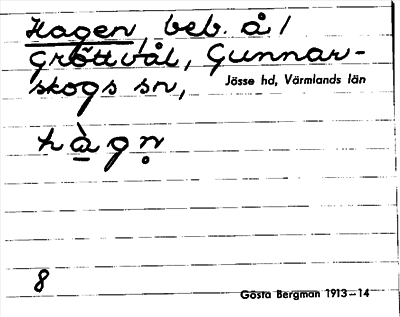 Hagen, beb. å /
Gröttvål, Gunnar-
skogs sn,
Jösse hd, Värmlands län
hàgn̥
8
Gösta Bergman 1913–14